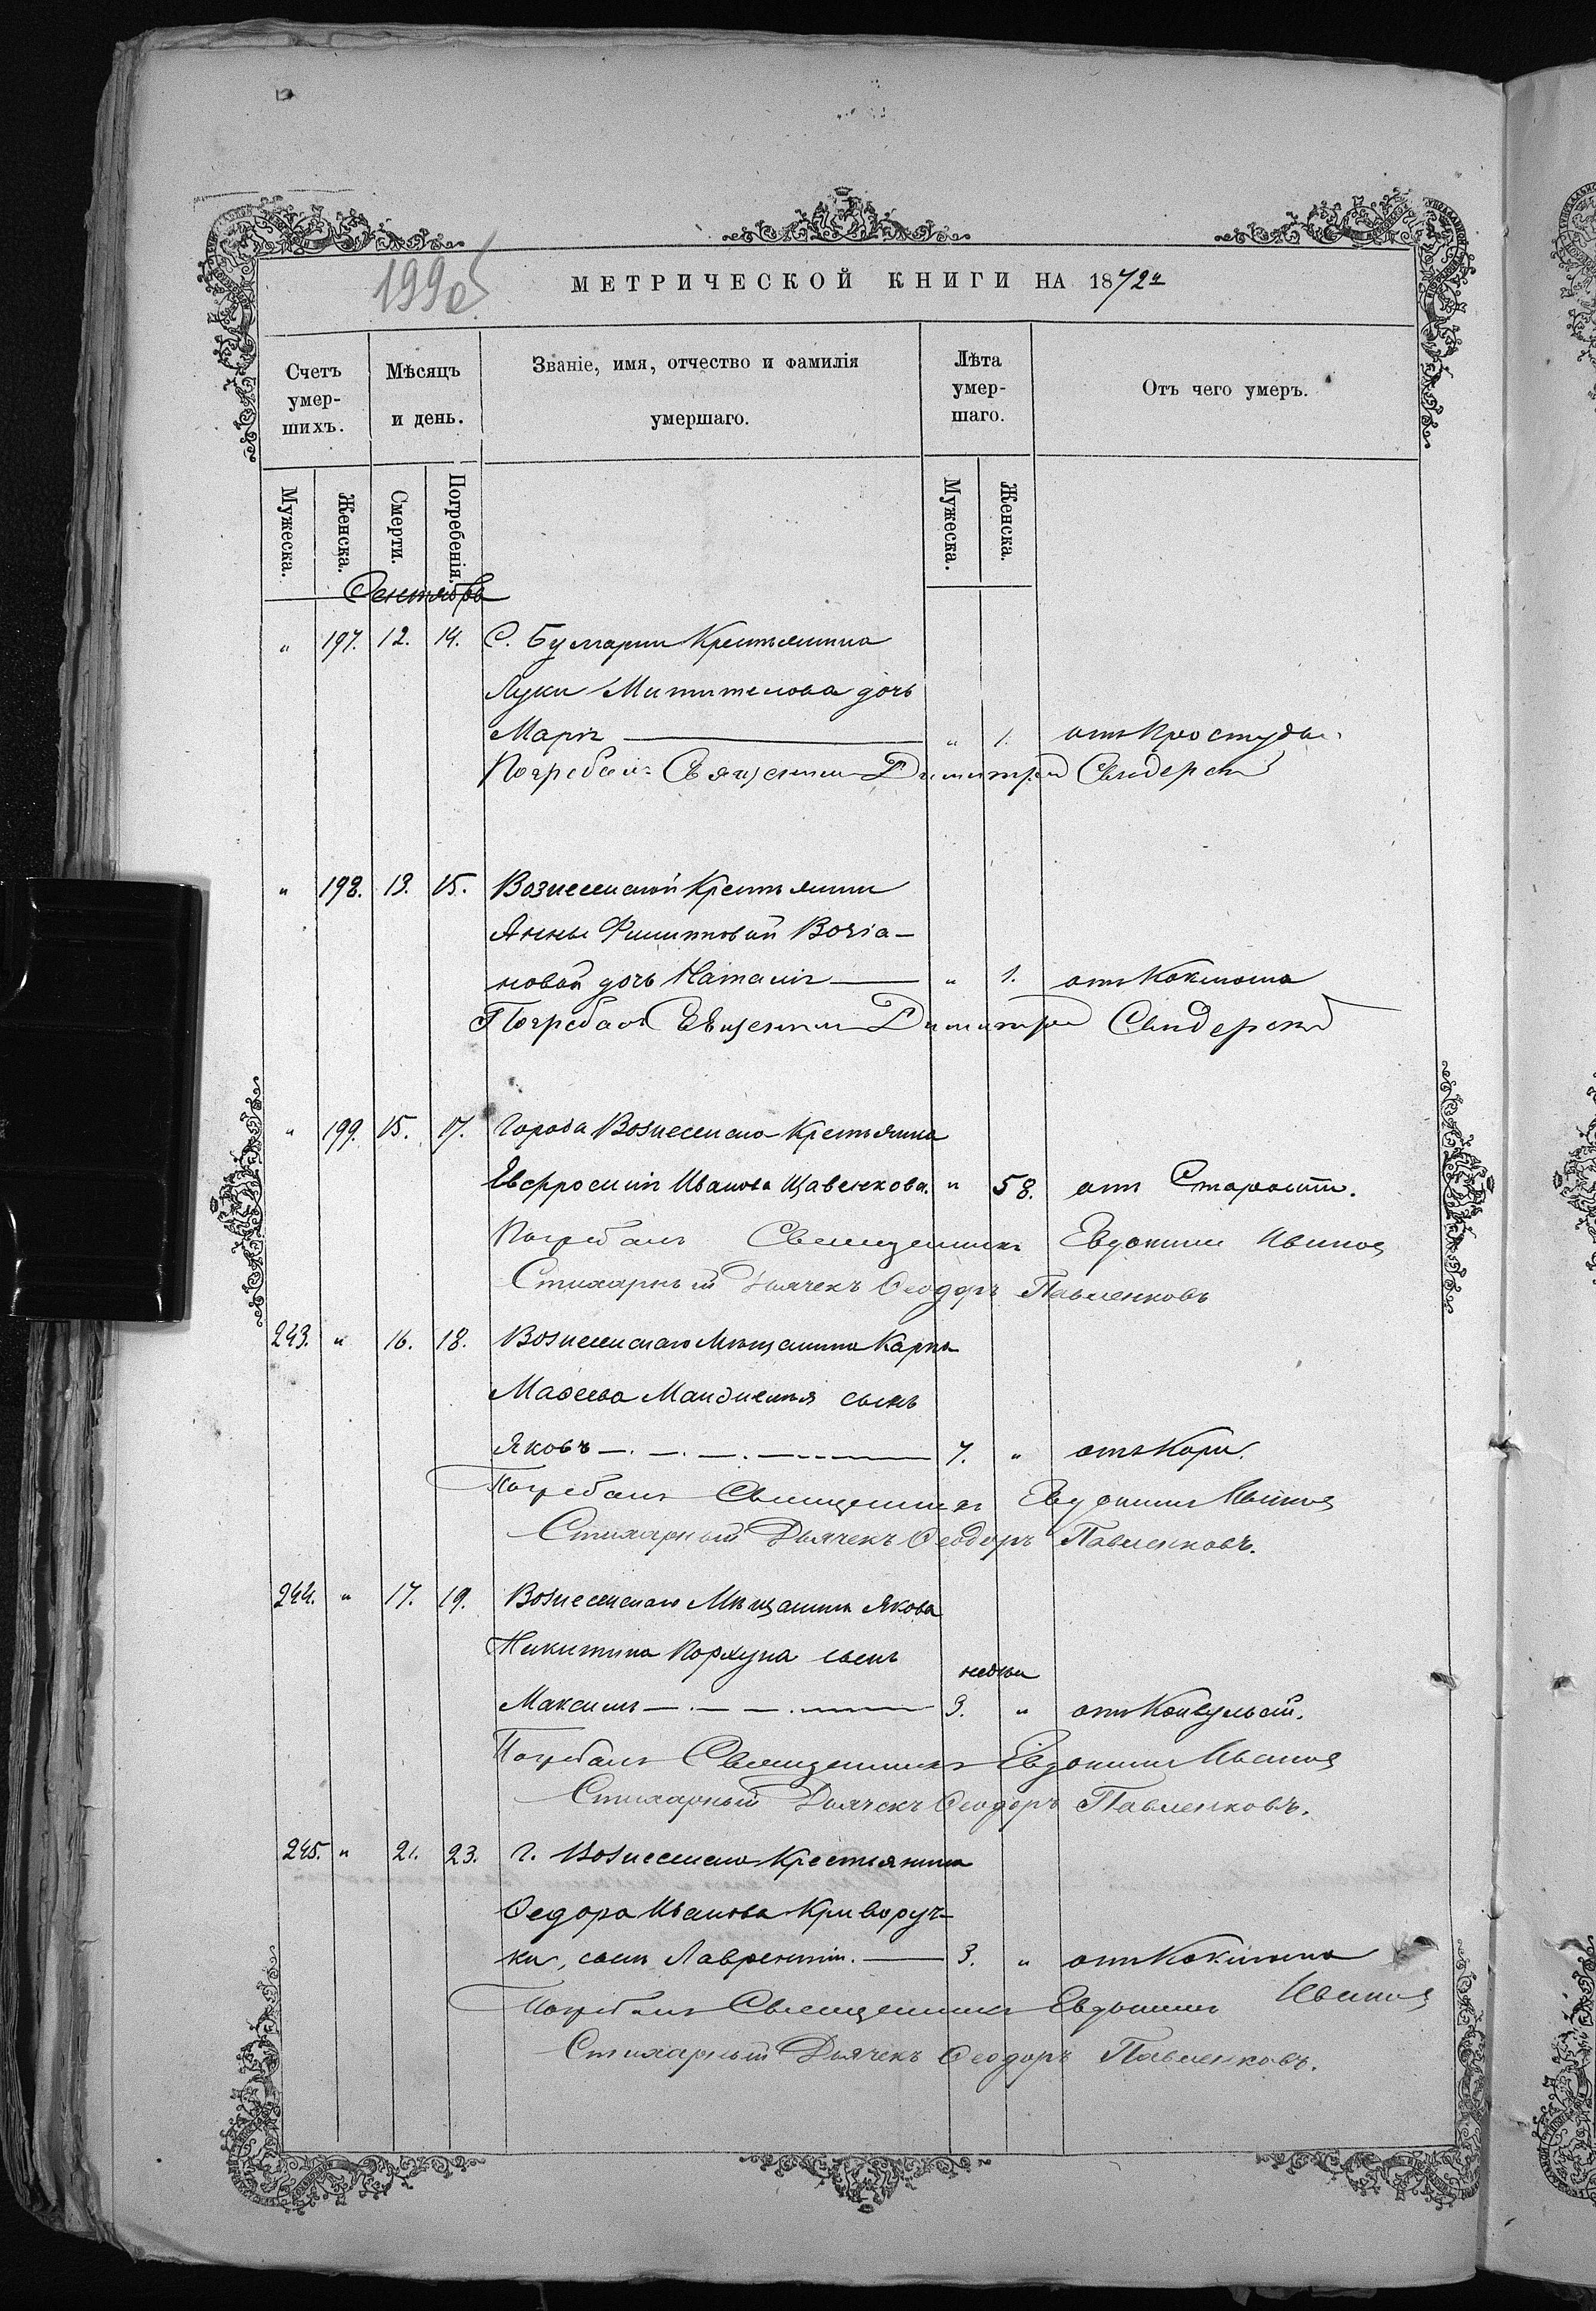 199об
МЕТРИЧЕСКОЙ КНИГИ НА 1872й
Счетъ умер- шихъ.
Мѣсяцъ и день.
Званіе, имя, отчество и фамилія умершаго.
Лѣта умер- шаго.
Отъ чего умеръ.
Мужеска. Женска. Смерти. Погребенія. Мужеска. Женска.
Сентябрь
" 197. 12. 14. С. Булгарки Крестьянина
Луки Мититилова дочь
Марія " 1. отъ Простуды
Погребалъ Священникъ Димитрій
" 198. 13. 15. Вознесенской Крестьянки
Анны Филипповой Вогіа-
новой дочь Наталія " 1. отъ Коклюша
Погребалъ Священникъ Димитрій
" 199. 15. 17. Города Вознесенска Крестьянка
Евфросинія Иванова Щавенкова. " 58. отъ Старости.
Погребалъ Священникъ Евдокимъ Ивановъ
Стихарный Дьячекъ Ѳеодоръ Павленковъ
243. " 16. 18. Вознесенскаго Мѣщанина Карпа
Маѳеева сынъ
Яковъ 7. " отъ Кори.
Погребалъ Священникъ Евдокимъ Ивановъ
Стихарный Дьячекъ Ѳеодоръ Павленковъ.
244. " 17. 19. Вознесенскаго Мѣщанина Якова
Никитина Коржуна сынъ
недѣли
Максимъ 3. " отъ Конвульсій.
Погребалъ Священникъ Евдокимъ Ивановъ
Стихарный Дьячекъ Ѳеодоръ Павленковъ.
245. " 21. 23. г. Вознесенска Крестьянина
Ѳедора Иванова Криворуч-
ки, сынъ Лаврентій. 3. " отъ Коклюша
Погребалъ Священникъ Евдокимъ Ивановъ
Стихарный Дьячекъ Ѳеодоръ Павленковъ.